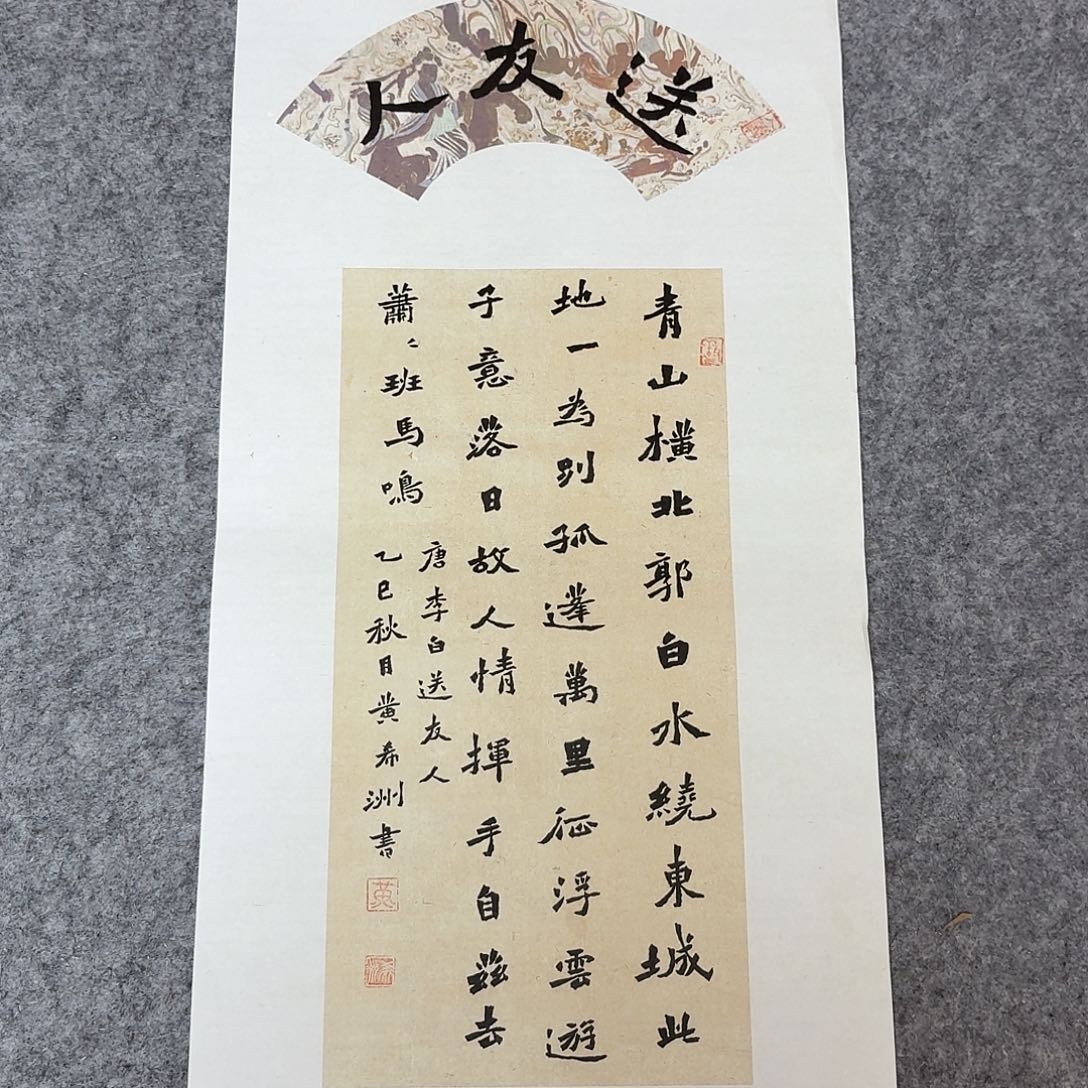 送友人
青山橫北郭白水繞東城此
地一為別孤蓬萬里征浮雲遊
子意落日故人情揮手自茲去
蕭〻班馬鳴
唐李白送友人
乙巳秋月黄希洲書
黄